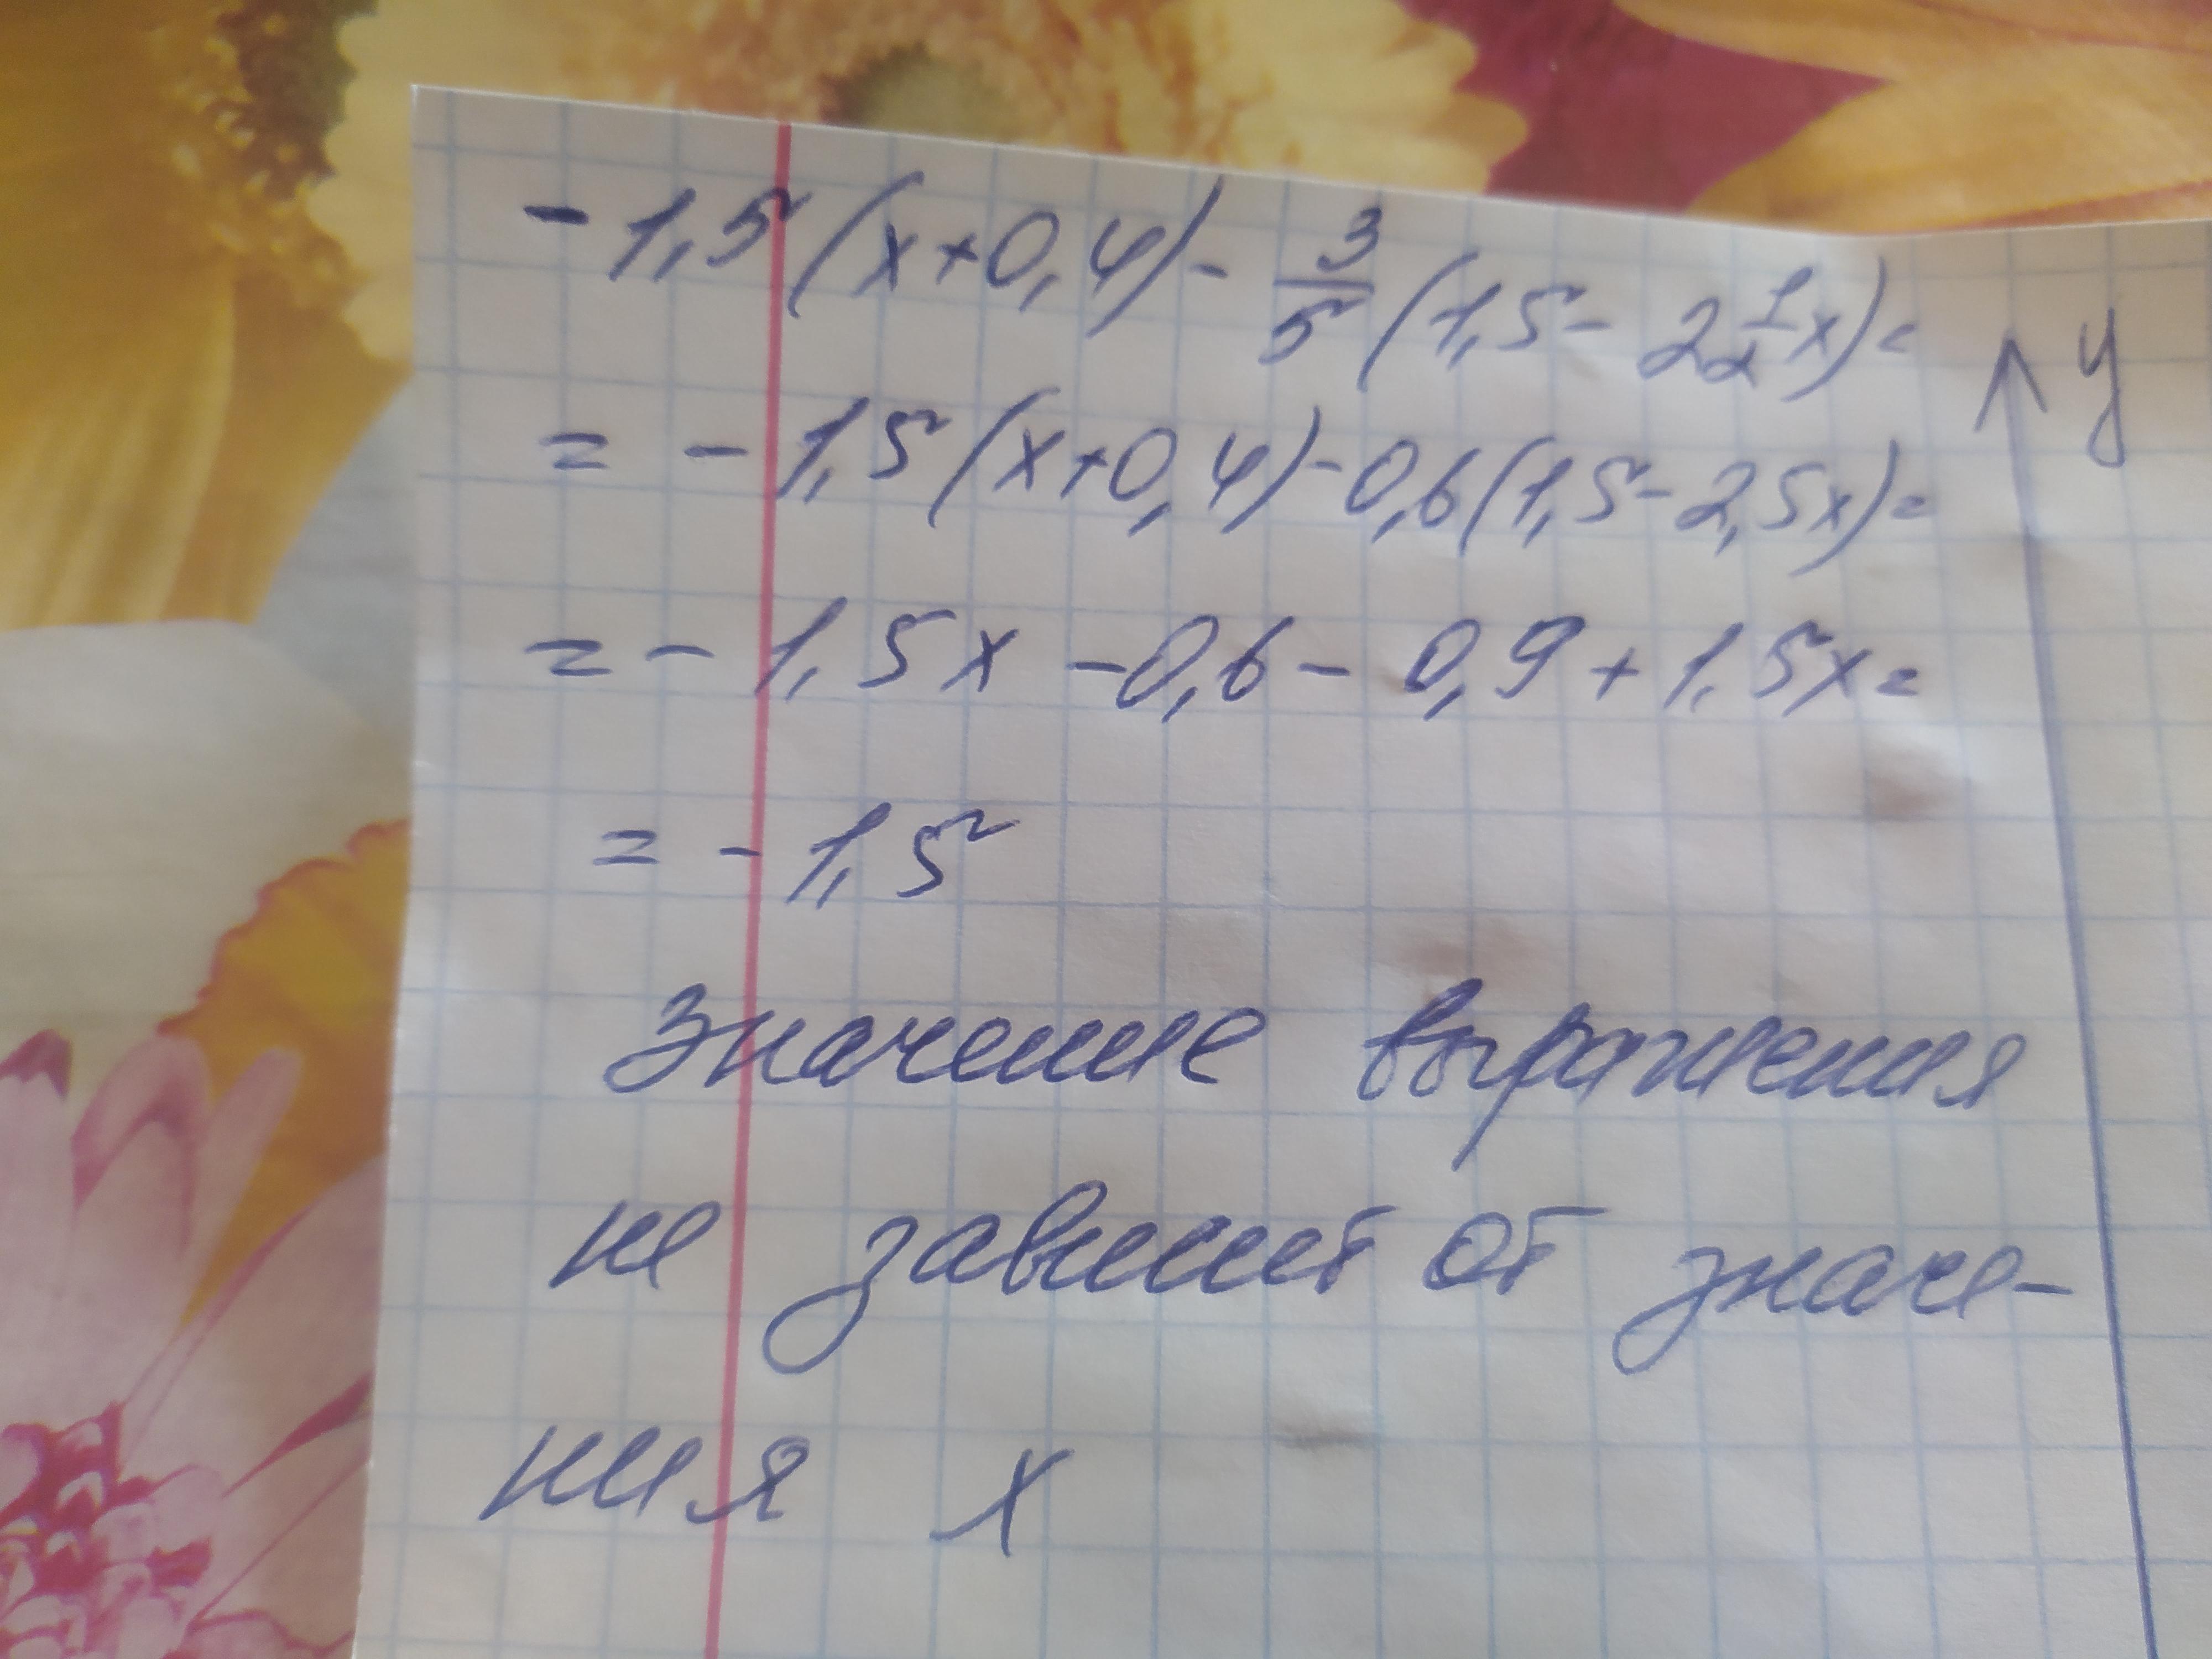 -1,5(x+0,4)-3/5(1,5-2 1/2x)=
y
=-1,5(x+0,4)-0,6(1,5-2,5x)=
=-1,5x-0,6-0,9+1,5x=
=-1,5
значение выражения
не зависит от значе-
ния x